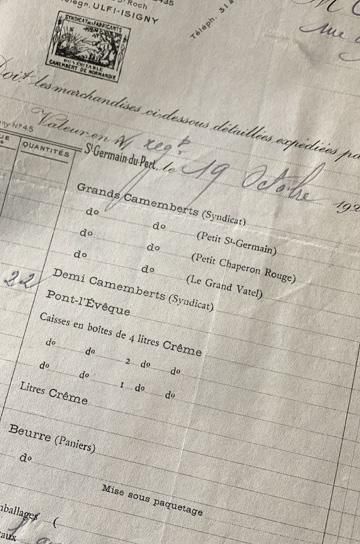 St-Roch
Télégr. ULFI-ISIGNY
Téléph. 51
SYNDICAT des FABRICANTS
du VÉRITABLE
CAMEMBERT DE NORMANDIE
Doit les marchandises ci-dessous détaillées expédiées
Valeur en
N° 45
QUANTITÉS
St-Germain-du-Pert, le 19 Octobre 192
Grands Camemberts (Syndicat)
do do (Petit St-Germain)
do do (Petit Chaperon Rouge)
do do (Le Grand Vatel)
22 Demi Camemberts (Syndicat)
Pont-l'Évêque
Caisses en boîtes de 4 litres Crême
do do 2 do do
do do 1 do do
Litres Crême
Beurre (Paniers)
do
Mise sous paquetage